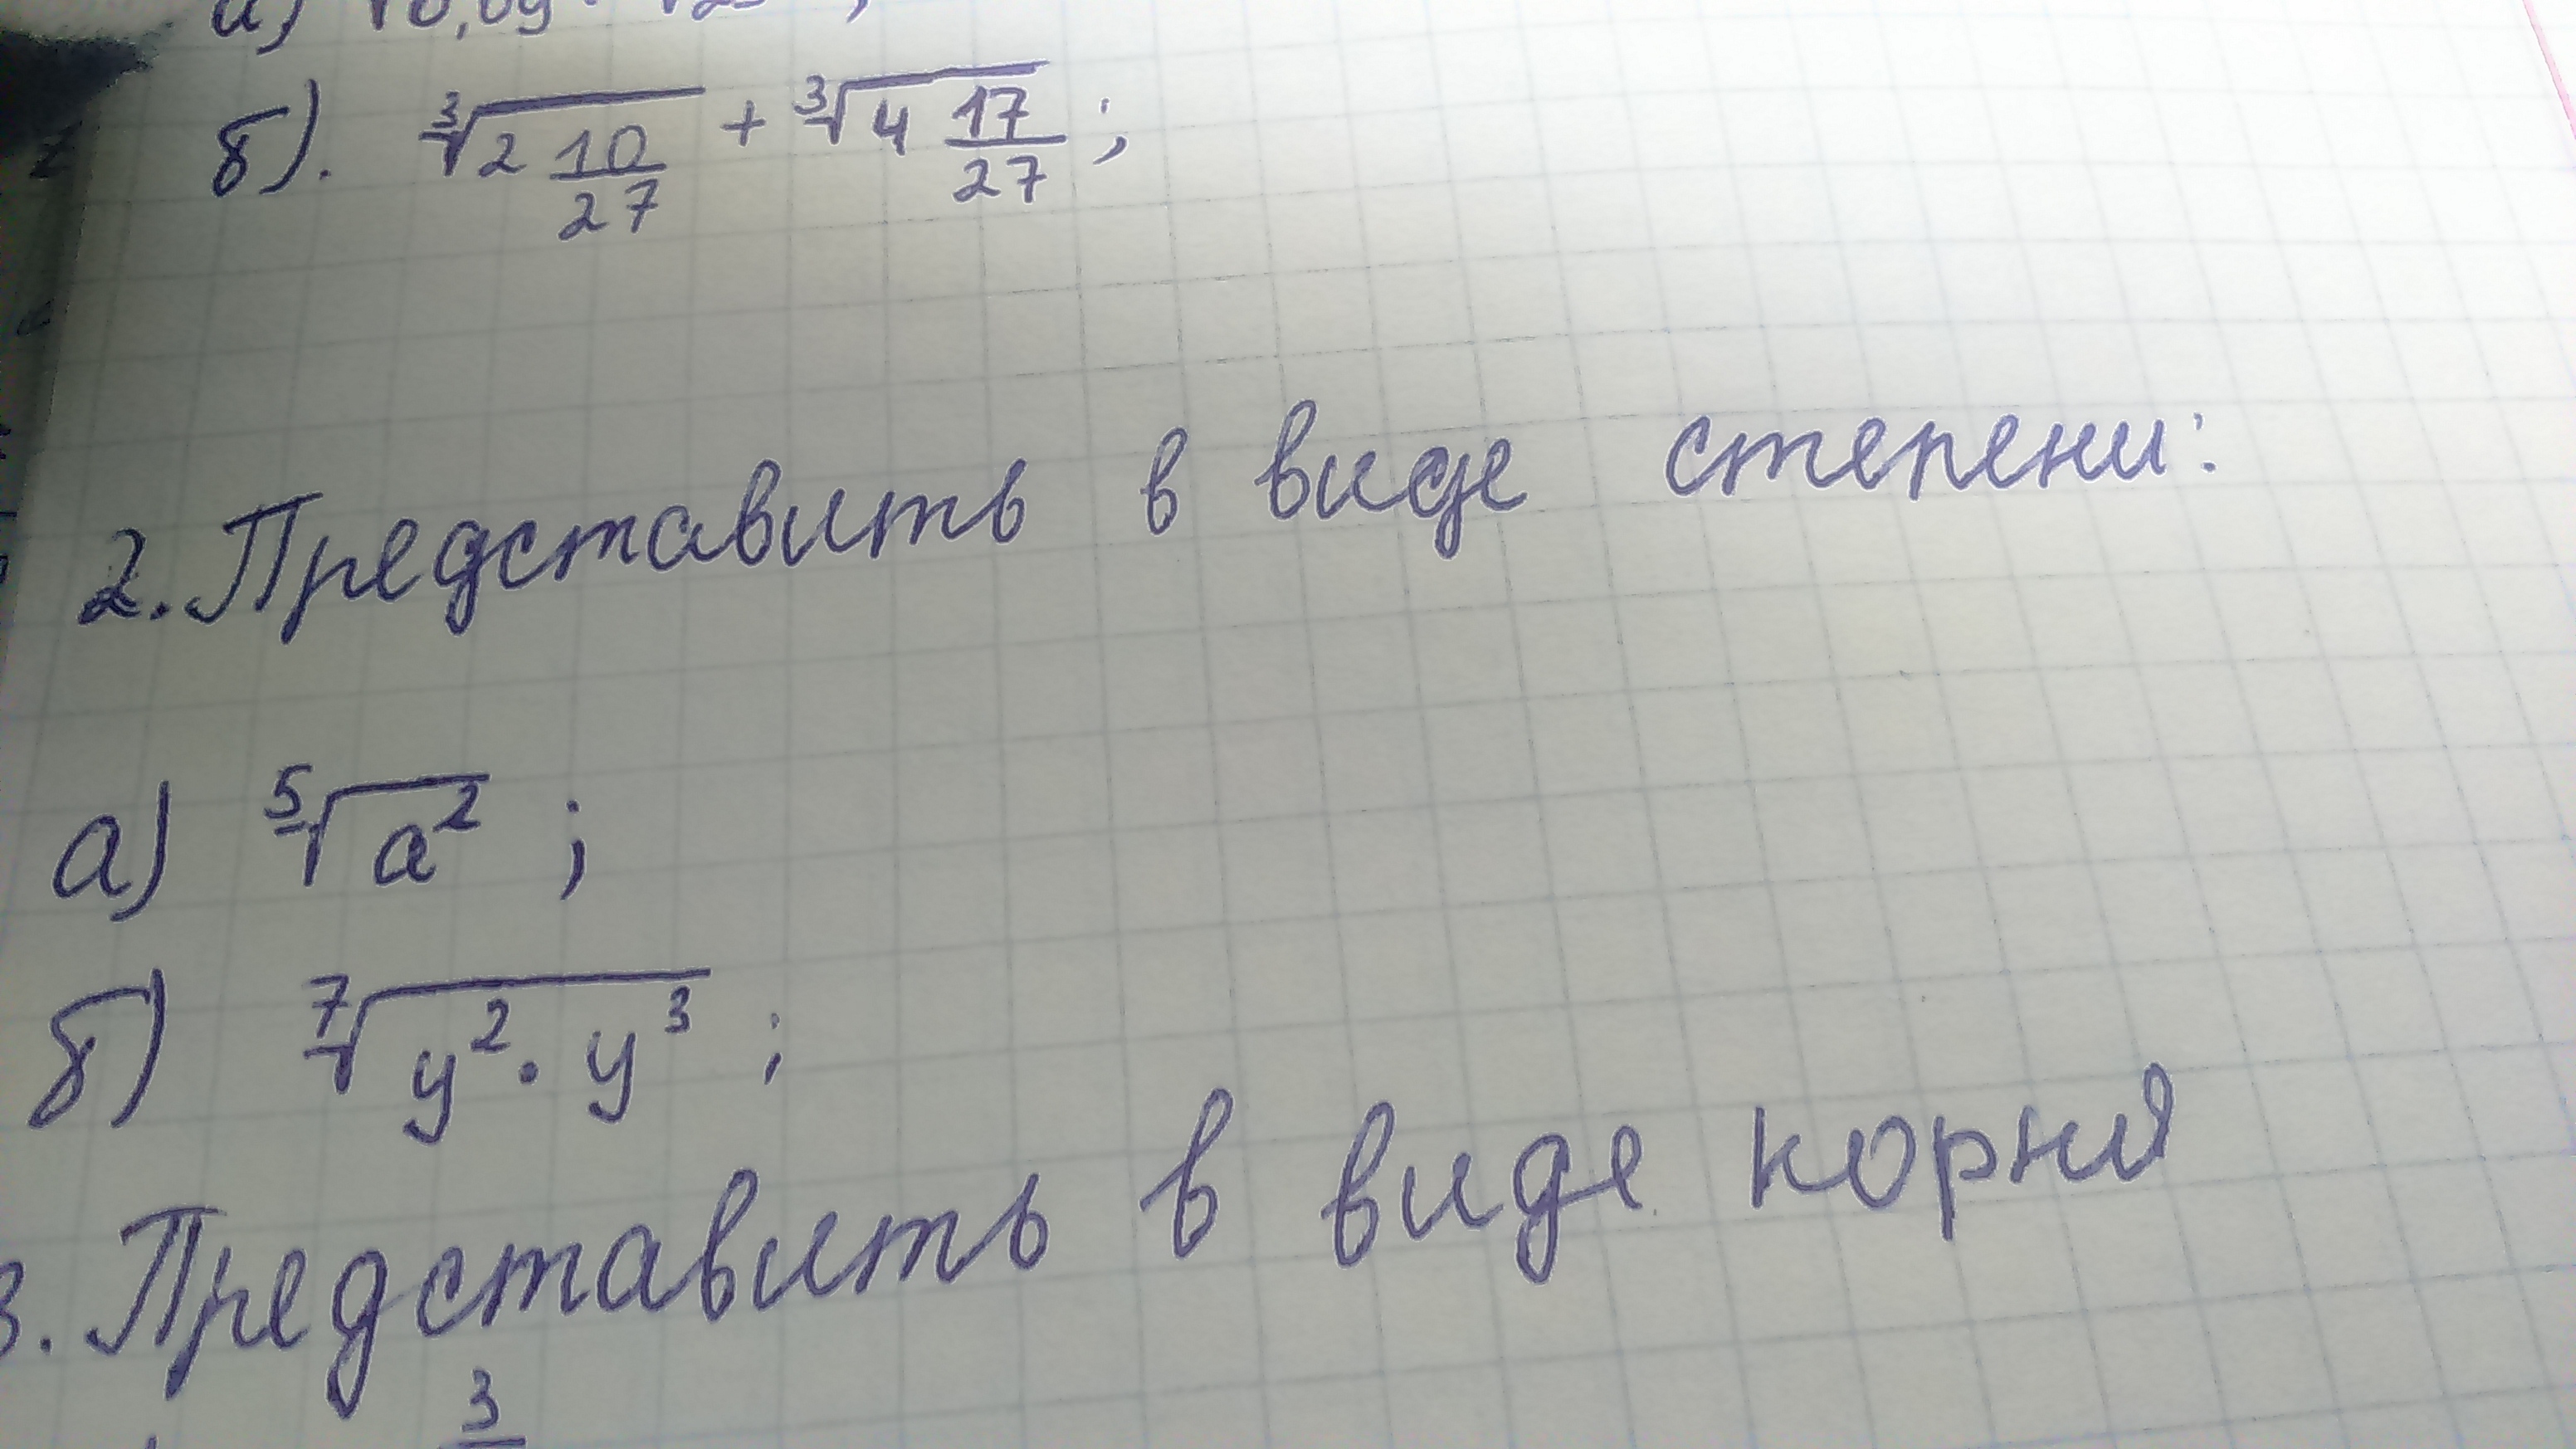 а) √0,09 · √25 ;
б). ∛(2 10/27) + ∛(4 17/27) ;
2. Представить в виде степени:
а) ⁵√(a²) ;
б) ⁷√(y² · y³) ;
3. Представить в виде корня
3